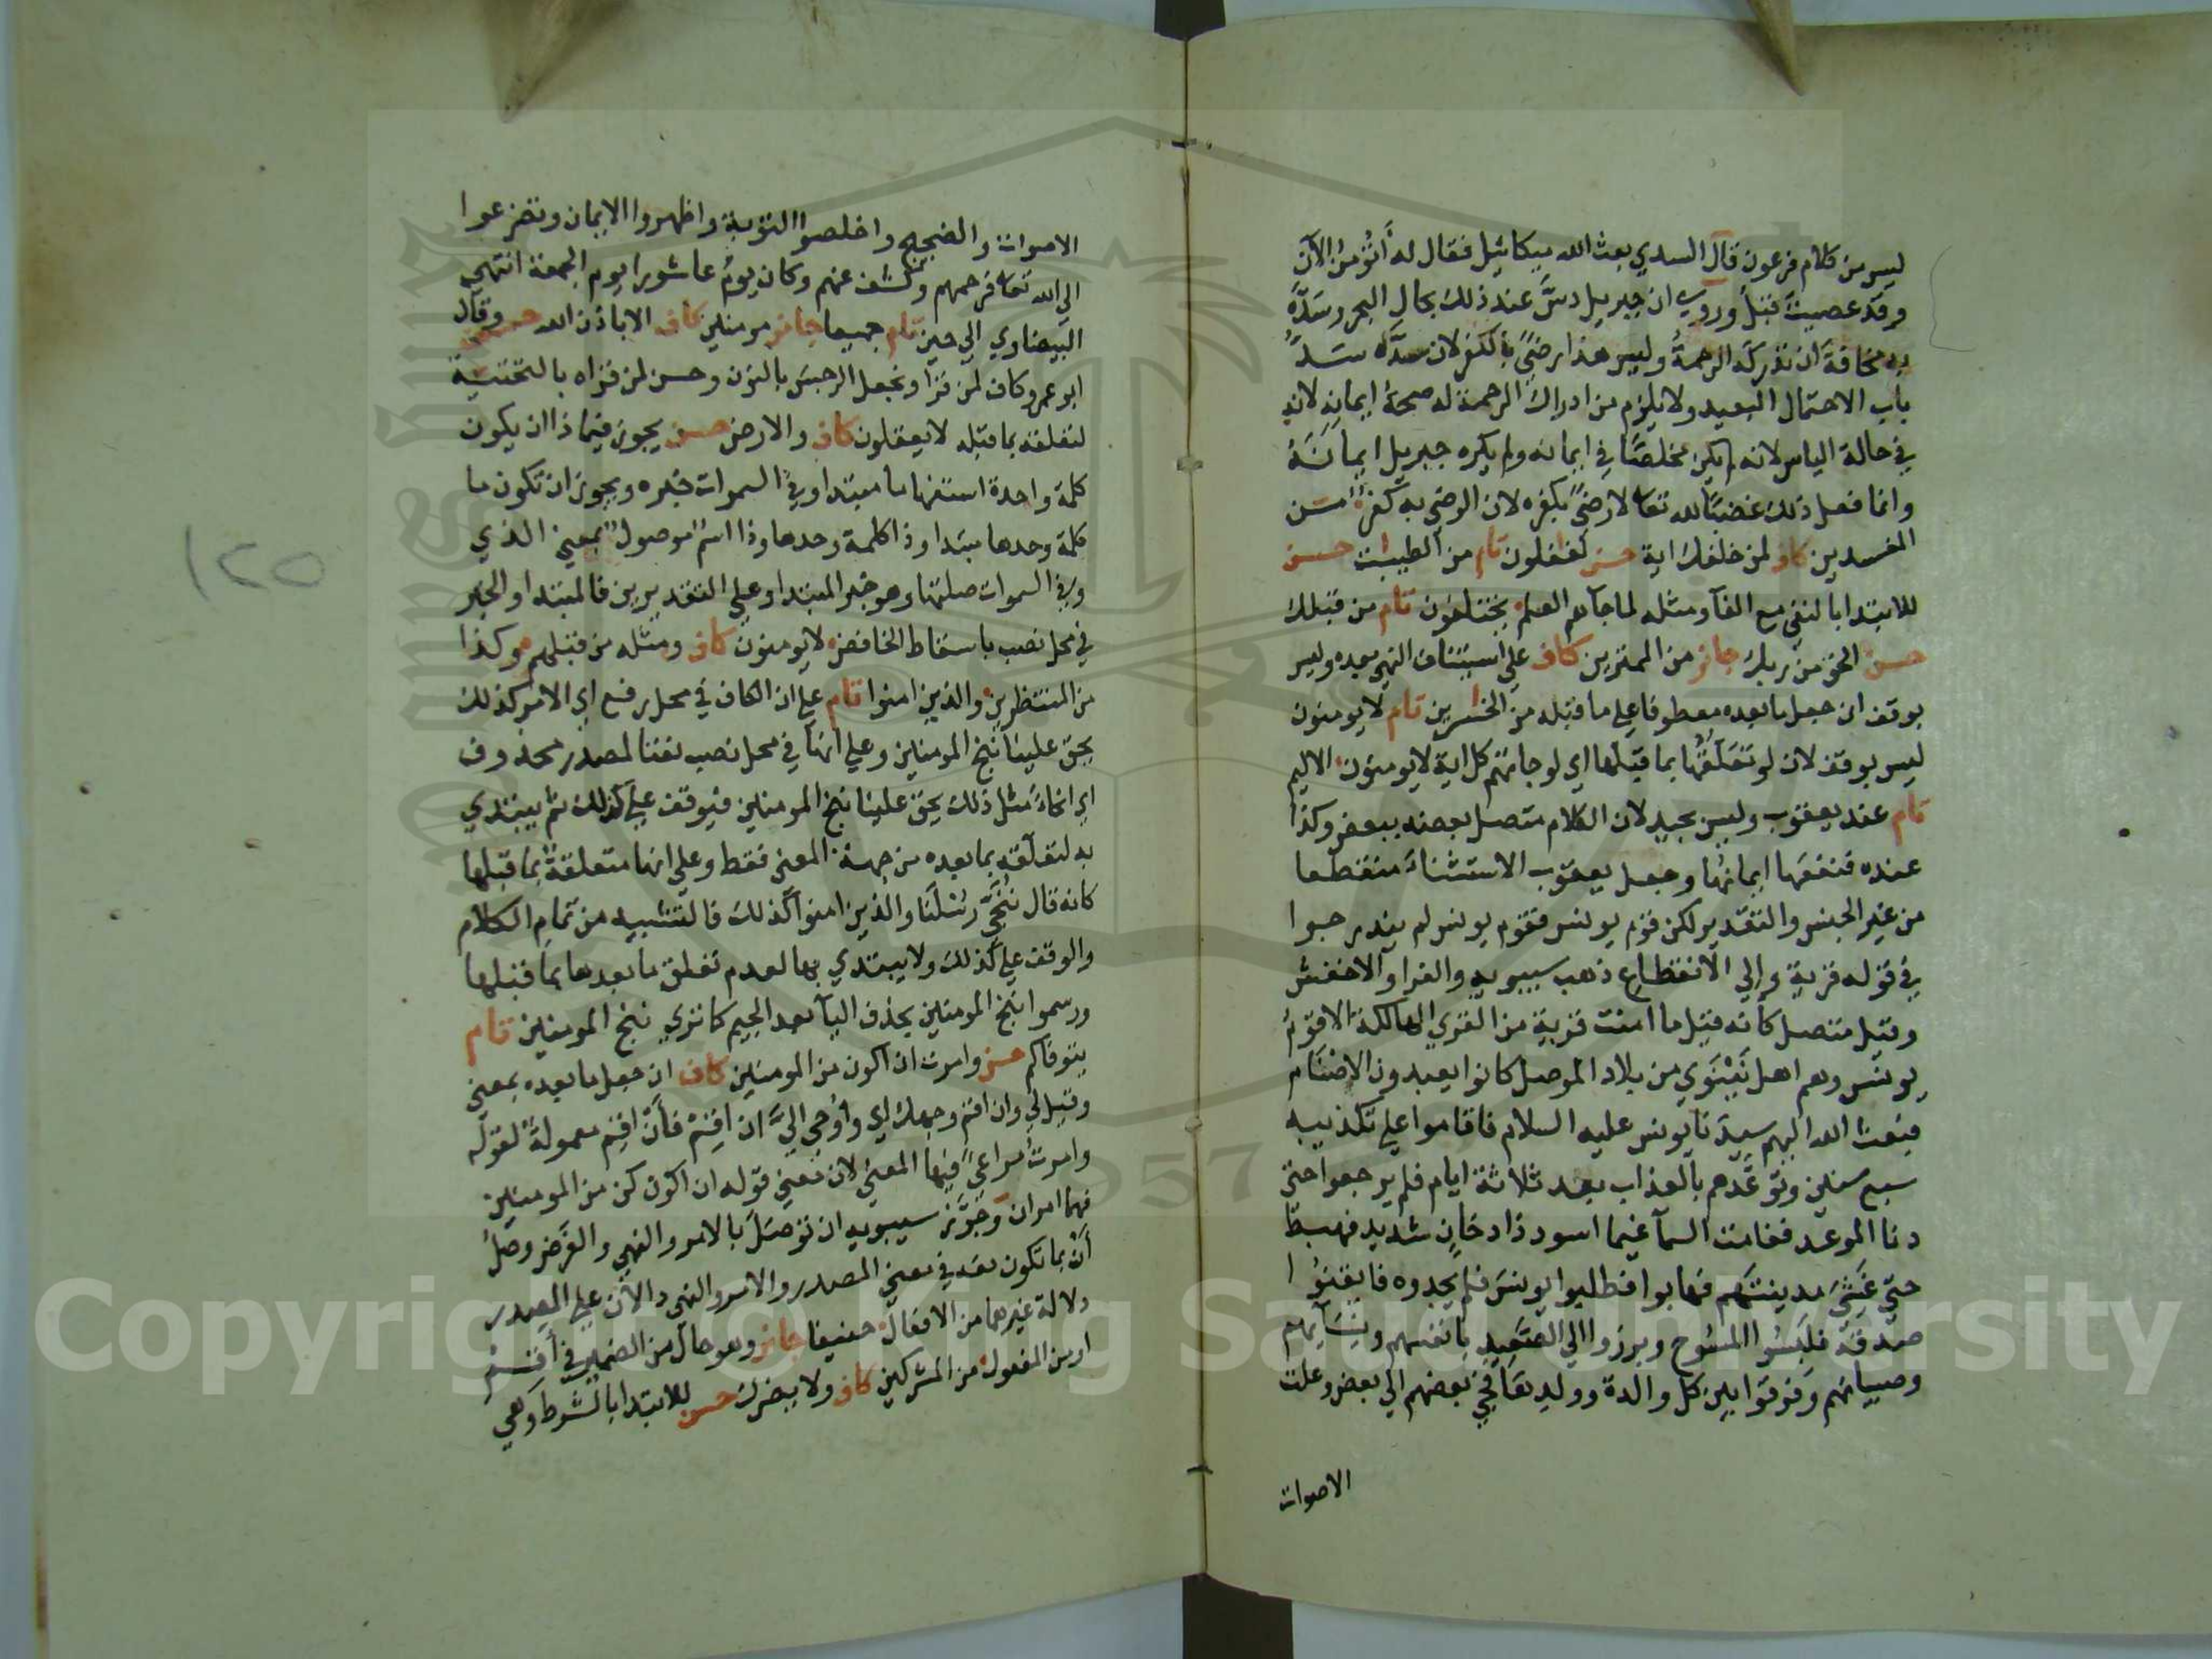 ليس من كلام فرعون قال السدي بعث الله ميكائيل فقال له أتؤمن الآن
وقد عصيت قبل وروي ان جبريل دسّ عند ذلك بحال البحر وسَدّه
به مخافة ان تدركه الرحمة وليس هذا رضىً بالكفر لان سدّه سَدّ
باب الاحتمال البعيد ولا يلزم من ادراك الرحمة له صحة ايمانه لانه
في حالة الياس لانه لم يكن مخلصًا في ايمانه ولم يكره جبريل ايمانَهُ
وانما فعل ذلك غضبًا لله تعا لا رضىً بكفره لان الرضى به كفر من
المفسدين كاف لمن خلفك اية حسن لغفلون تام من الطيبت حسن
للابتدا بالنفي مع الفآ ومثله لما جآهم العلم يختلفون تام من قبلك
حسن الحق من ربك جائز من الممترين كاف على استئناف النهي بعده وليس
بوقف ان جعل ما بعده معطوفا على ما قبله من الخسرين تام لا يومنون
ليس بوقف لان لو تعَلّقُها بما قبلها اي لو جاتهم كل اية لا يومنون الاليم
تام عند يعقوب وليس بجيد لان الكلام متصل بعضه ببعض وكذا
عنده فنفعها ايمانها وجعل يعقوب الاستثناء منقطعا
من غير الجنس والتقدير لكن قوم يونس فقوم يونس لم يندرجوا
في قوله قرية والي الانقطاع ذهب سيبويه والفرا والاخفش
وقيل متصل كانه قيل ما امنت قرية من القري الهالكة الا قومُ
يونس وهم اهل نَيْنَوي من بلاد الموصل كانوا يعبدون الاصْنَام
فبعث الله اليهم سيدنا يونس عليه السلام فاقاموا على تكذيبه
سبع سنين وتوعّدهم بالعذاب بعد ثلاثة ايام فلم يرجعوا حتى
دنا الموعد فغامت السمآ غيما اسود ذا دخان شديد فهبط
حتي غَشِيَ مدينتَهم فهابوا فطلبوا يونسَ فلم يجدوه فايقنُوا
صدقه فلبَسُوا المسُوح وبرزوا الي الصَّعِيدِ بانفسهم ونِسَآيهم
وصبيانهم وفرقوا بين كل والدة وولدِ‌ها فحنّ بعضهم الي بعض وعلت
الاصوات
الاصوات والضجيج واخلصوا التوبة واظهروا الايمان وتضرعوا
الي الله تعا فرحمهم وكشف عنهم وكان يومُ عاشورا يوم الجمعة انتهى
البيضاوي الي حين تام جميعا جائز مومنين كاف الا باذن الله حسن وقال
ابو عمرو كاف لمن قرا ونجعل الرجس بالنون وحسن لمن قراه بالتحتية
لتعلقه بما قبله لا يعقلون كاف والارض حسن يجوز في ماذا ان يكون
كلمة واحدة استفهاما مبتدا وفي السموات خبره ويجوز ان تكون ما
كلمة وحدها مبتدا وذا كلمة وحدها وذا اسم موصول بمعني الذي
وفي السموات صلتها وهو خبر المبتدا وعلي التقديرين فالمبتدا والخبر
في محل نصب باسقاط الخافض لا يومنون كاف ومثله من قبلهم وكذا
من المنتظرين والذين امنوا تام على ان الكاف في محل رفع اي الامر كذلك
يحق علينا ننج المومنين وعلي انها في محل نصب نعتا لمصدر محذوف
اي انجاءً مثل ذلك يحق علينا ننج المومنين فيوقف على كذلك ثم يبتدي
به لتعلقه بما بعده من جهة المعني فقط وعلي انها متعلقة بما قبلها
كانه قال نُنَجِّي رسُلَنا والذين امنوا كذلك فالتشبيه من تمام الكلام
والوقف علي كذلك ولا يبتدي بها لعدم تعلق ما بعدها بما قبلها
ورسموا ننج المومنين بحذف اليآ بعد الجيم كما تري ننج المومنين تام
يتوفاكم حسن وامرت ان اكون من المومنين كاف ان جعل ما بعده بمعني
وقيل لي وان اقم وجهك اي واوحي اليّ ان اقِمْ فأن اقِم معمولة لقوله
وامرت مراعىً فيها المعني لان معني قوله ان اكون كن من المومنين
فهما امران وجَوّز سيبويه ان توصَلَ بالامر والنهي والغَرض وصلُ
أنْ بما تكون معه في معني المصدر والامر والنهي دالان على المصدر
دلالة غيرهما من الافعال حنيفا جائز وهو حال من الضمير في أقم
او من المفعول من المشركين كاف ولا يضرك حسن للابتدا بالشرط وهي
١٢٥
Copyright © King Saud University
1957